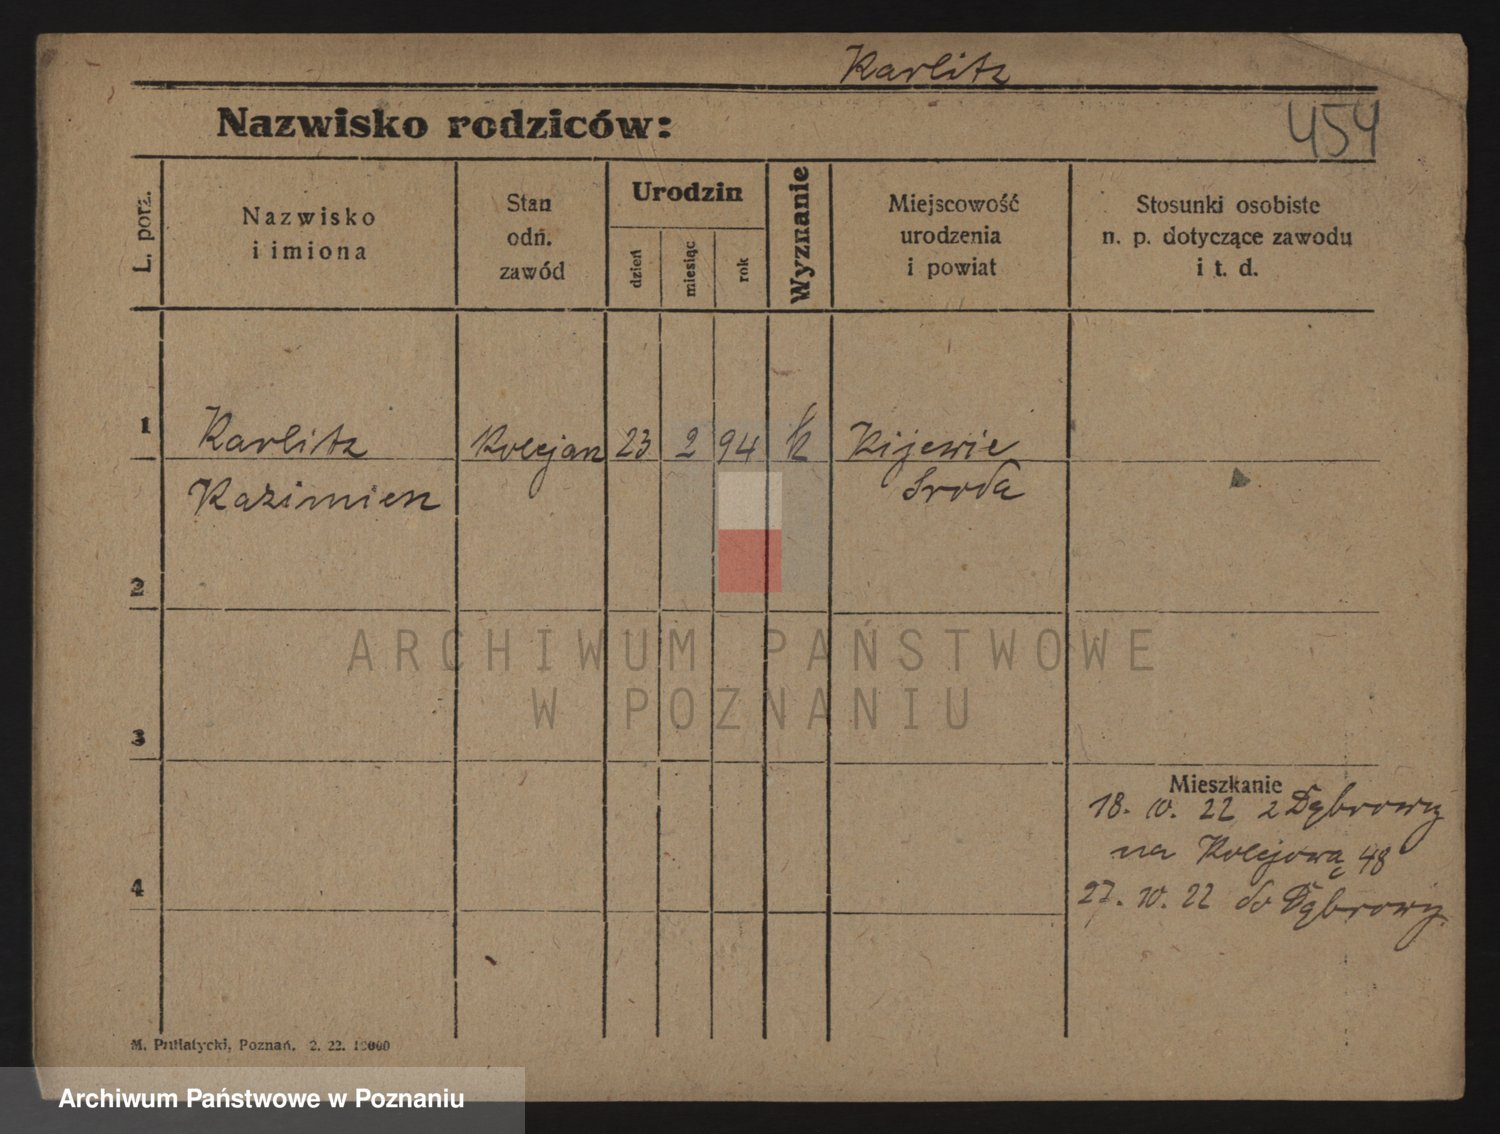 Karlitz
Nazwisko rodziców:
454
L. porz.
Nazwisko
i imiona
Stan
odn.
zawód
Urodzin
dzień
miesiąc
rok
Wyznanie
Miejscowość
urodzenia
i powiat
Stosunki osobiste
n. p. dotyczące zawodu
i t. d.
1
Karlitz Kolejarz 23 2 94 k Kijewie
Kazimierz Sroda
2
ARCHIWUM PAŃSTWOWE
W POZNANIU
3
Mieszkanie
18. 10. 22 z Dąbrowy
na Kolejową 48
4
27. 10. 22 do Dąbrowy
M. Putiatycki, Poznań. 2. 22. 10000
Archiwum Państwowe w Poznaniu